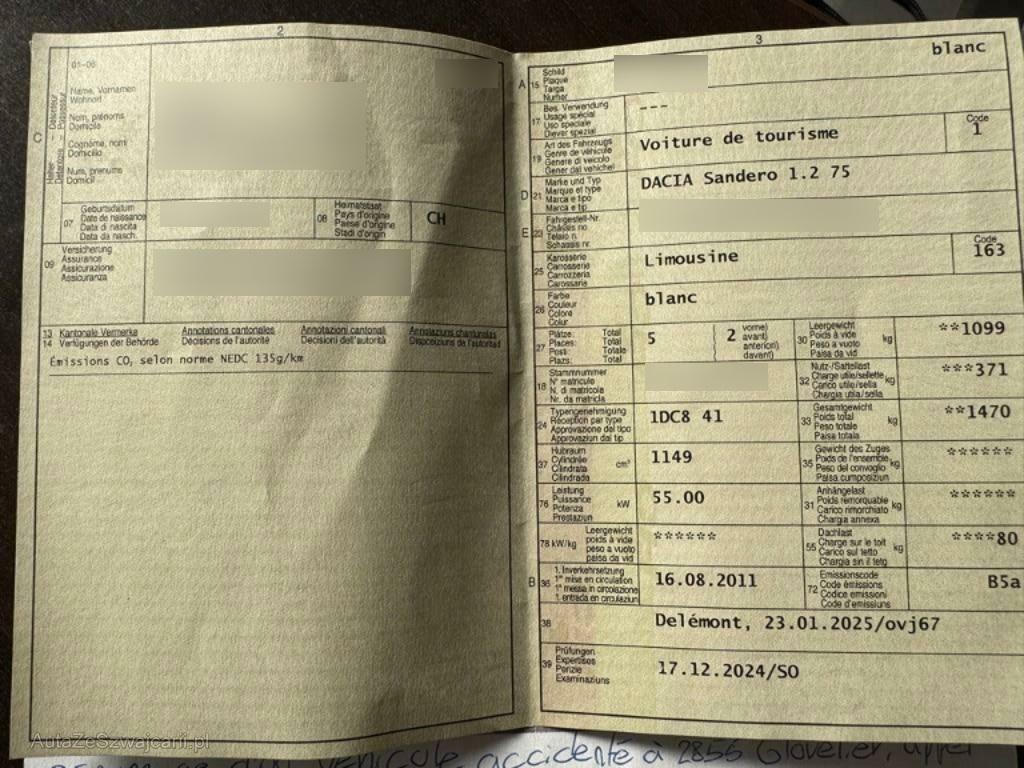 2
01-06
C
Halter
Détenteur
Name, Vornamen
Wohnort
Nom, prénoms
Domicile
Cognome, nomi
Domicilio
Num, prenums
Domicil
07
Geburtsdatum
Date de naissance
Data di nascita
Data da nasch.
08
Heimatstaat
Pays d'origine
Paese d'origine
Stadi d'origin
CH
09
Versicherung
Assurance
Assicurazione
Assicuranza
13 Kantonale Vermerke Annotations cantonales Annotazioni cantonali Annotaziuns chantunalas
14 Verfügungen der Behörde Décisions de l'autorité Decisioni dell'autorità Disposiziuns de l'autoritad
Émissions CO₂ selon norme NEDC 135g/km
3
blanc
A 15
Schild
Plaque
Targa
Numer
17
Bes. Verwendung
Usage spécial
Uso speciale
Diever spezial
---
19
Art des Fahrzeugs
Genre de véhicule
Genere di veicolo
Gener dal vehichel
Voiture de tourisme
Code
1
D 21
Marke und Typ
Marque et type
Marca e tipo
Marca e tip
DACIA Sandero 1.2 75
E 23
Fahrgestell-Nr.
Châssis no
Telaio n.
Schassis nr.
25
Karosserie
Carrosserie
Carrozzeria
Carossaria
Limousine
Code
163
26
Farbe
Couleur
Colore
Colur
blanc
27
Plätze: Total
Places: Total
Posti: Totale
Plazs: Total
5
2
vorne)
avant)
anteriori)
davant)
30
Leergewicht
Poids à vide
Peso a vuoto
Paisa da vid
kg
**1099
18
Stammnummer
N° matricule
N. di matricola
Nr. da matricla
32
Nutz-/Sattellast
Charge utile/sellette
Carico utile/sella
Chargia utila/sella
kg
***371
24
Typengenehmigung
Réception par type
Approvazione del tipo
Approvaziun dal tip
1DC8 41
33
Gesamtgewicht
Poids total
Peso totale
Paisa totala
kg
**1470
37
Hubraum
Cylindrée
Cilindrata
Cilindrada
cm³
1149
35
Gewicht des Zuges
Poids de l'ensemble
Peso del convoglio
Paisa cumposiziun
kg
******
76
Leistung
Puissance
Potenza
Prestaziun
kW
55.00
31
Anhängelast
Poids remorquable
Carico rimorchiato
Chargia annexa
kg
******
78 kW/kg
Leergewicht
poids à vide
peso a vuoto
paisa da vid
******
55
Dachlast
Charge sur le toit
Carico sul tetto
Chargia sin il tetg
kg
****80
B 36
1. Inverkehrsetzung
1re mise en circulation
1a messa in circolazione
1. entrada en circulaziun
16.08.2011
72
Emissionscode
Code émissions
Codice emissioni
Code d'emissiuns
B5a
38
Delémont, 23.01.2025/ovj67
39
Prüfungen
Expertises
Perizie
Examinaziuns
17.12.2024/SO
AutaZeSzwajcarii.pl
véhicule accidenté à 2855 Glovelier